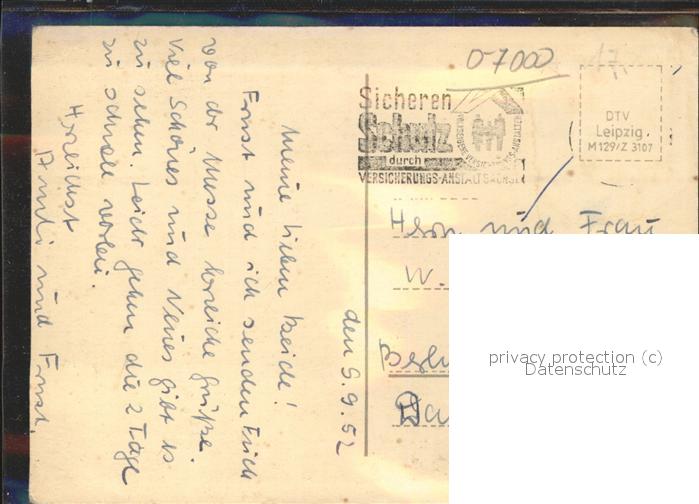 07000
Sicheren
Schutz
durch
VERSICHERUNGS-ANSTALT SACHSEN
DTV
Leipzig
M 129/Z 3107
den 5.9.52
Meine lieben Beide!
Ernst und ich senden Euch
von der Messe herzliche Grüße.
Viel Schönes und Neues gibt es
zu sehen. Leider gehen die 2 Tage
zu schnell vorbei.
Herzlichst
und Ernst.
Herrn und Frau
W.
Berlin
privacy protection (c)
Datenschutz